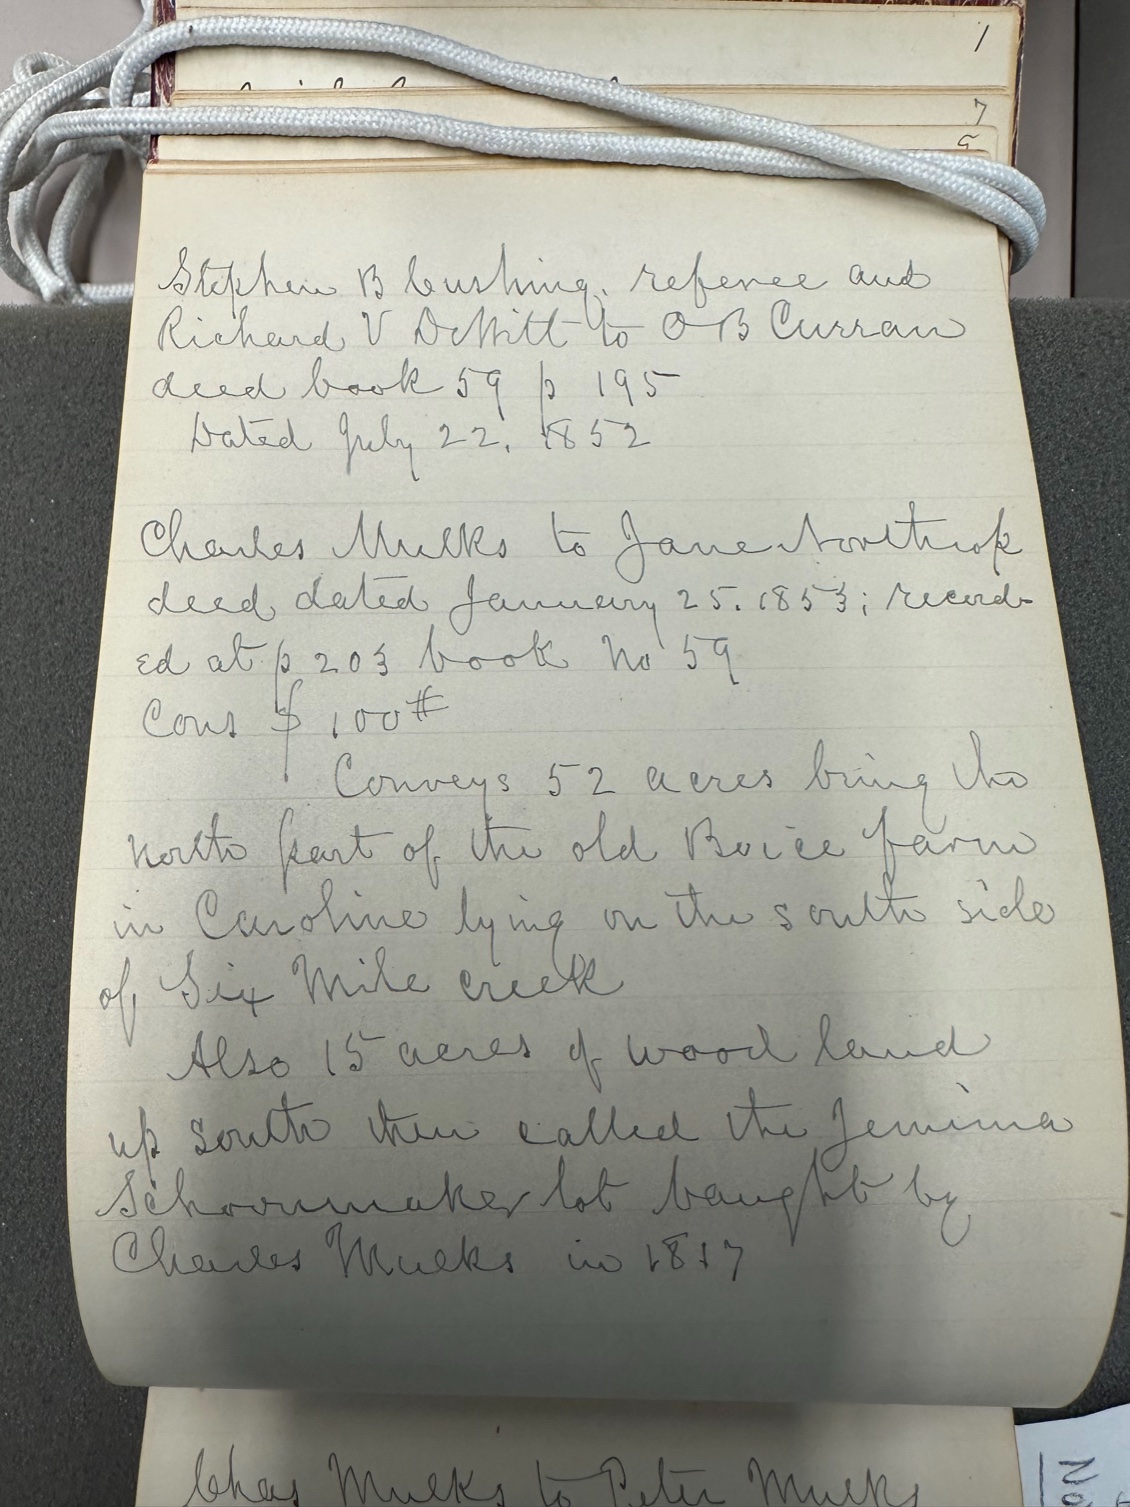 1
7
5
Stephen B Cushing, referee and
Richard V DeWitt to O B Curran
deed book 59 p 195
Dated July 22, 1852
Charles Mulks to Jane Northrop
deed dated January 25. 1853; record-
ed at p 203 book No 59
Cons $ 100#
Conveys 52 acres being the
north part of the old Boice farm
in Caroline lying on the south side
of Six Mile creek
Also 15 acres of wood land
up south then called the Jemima
Schoonmaker lot baught by
Charles Mulks in 1817
Chas Mulks to Peter Mulks
No